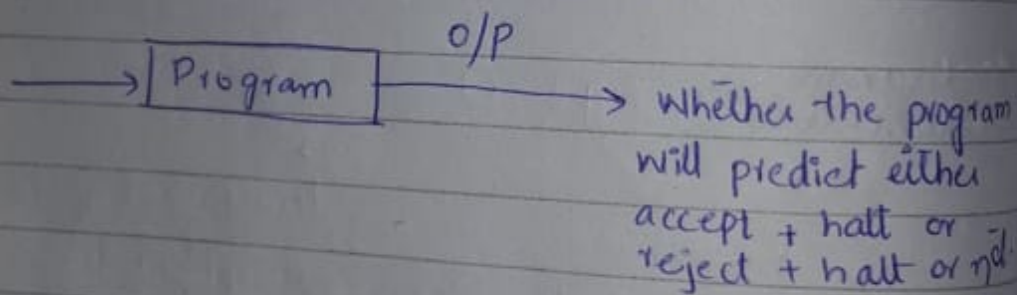 O/P
Program
Whether the program
will predict either
accept + halt or
reject + halt or